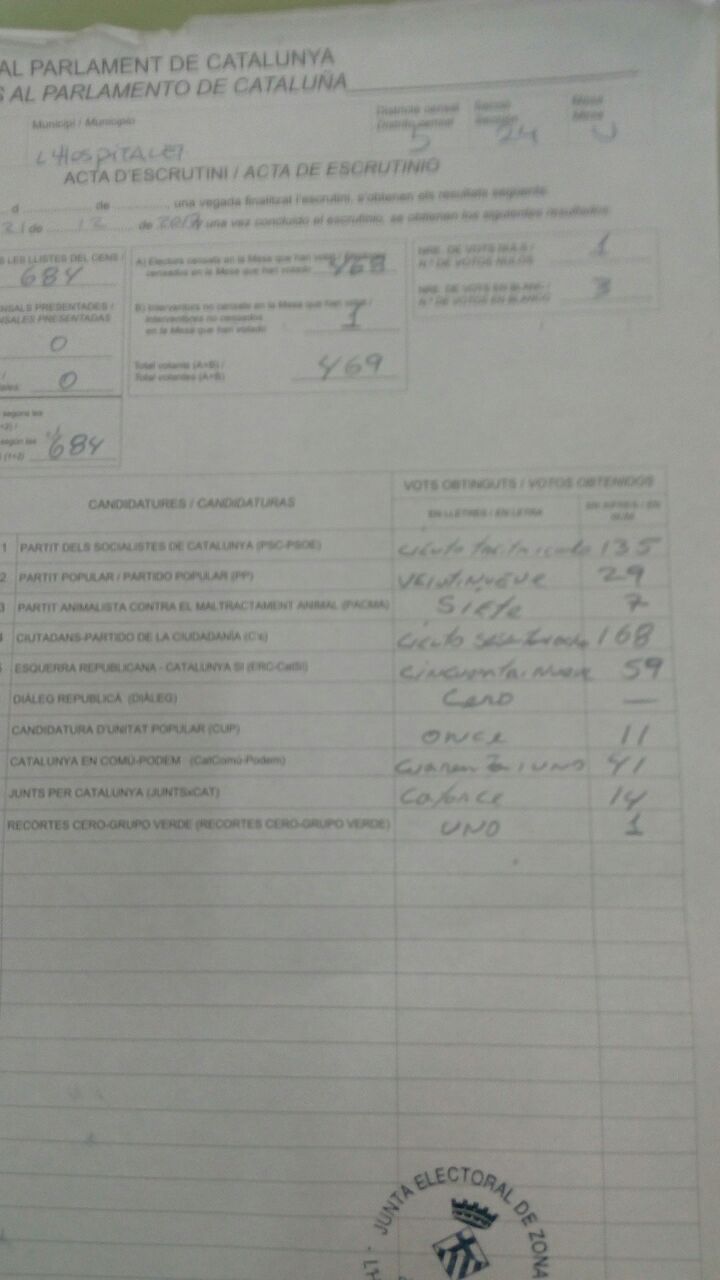 AL PARLAMENT DE CATALUNYA
S AL PARLAMENTO DE CATALUÑA
Municipi / Municipio
Districte censal
Distrito censal
Secció
Sección
Mesa
Mesa
L'HOSPITALET
5
24
U
ACTA D'ESCRUTINI / ACTA DE ESCRUTINIO
d ............ de ............, una vegada finalitzat l'escrutini, s'obtenen els resultats següents:
21 de 12 de 2017 y una vez concluido el escrutinio, se obtienen los siguientes resultados:
S LES LLISTES DEL CENS /
684
A) Electors censats en la Mesa que han votat /
censados en la Mesa que han votado
468
NRE. DE VOTS NULS /
N.º DE VOTOS NULOS
1
NSALS PRESENTADES /
NSALES PRESENTADAS
0
B) Interventors no censats en la Mesa que han votat /
Interventores no censados
en la Mesa que han votado
1
NRE. DE VOTS EN BLANC /
N.º DE VOTOS EN BLANCO
3
0
Total votants (A+B) /
Total votantes (A+B)
469
segons les
+2) /
según las
(1+2)
684
CANDIDATURES / CANDIDATURAS
VOTS OBTINGUTS / VOTOS OBTENIDOS
EN LLETRES / EN LETRA
EN XIFRES / EN
NÚM.
1 PARTIT DELS SOCIALISTES DE CATALUNYA (PSC-PSOE) ciento 135
2 PARTIT POPULAR / PARTIDO POPULAR (PP) VEINTINUEVE 29
3 PARTIT ANIMALISTA CONTRA EL MALTRACTAMENT ANIMAL (PACMA) Siete 7
4 CIUTADANS-PARTIDO DE LA CIUDADANÍA (C's) ciento 168
ESQUERRA REPUBLICANA - CATALUNYA SÍ (ERC-CatSí) cincuenta.nueve 59
DIÀLEG REPUBLICÀ (DIÀLEG) Cero —
CANDIDATURA D'UNITAT POPULAR (CUP) ONCE 11
CATALUNYA EN COMÚ-PODEM (CatComú-Podem) cuarenta i uno 41
JUNTS PER CATALUNYA (JUNTSxCAT) Catorce 14
RECORTES CERO-GRUPO VERDE (RECORTES CERO-GRUPO VERDE) UNO 1
JUNTA ELECTORAL DE ZONA